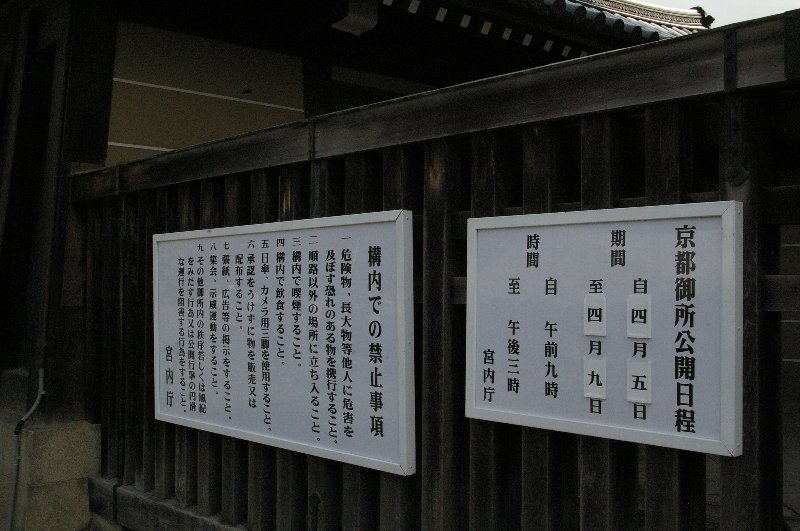 京都御所公開日程
期間
自 四月五日
至 四月九日
時間
自 午前九時
至 午後三時
宮内庁
構内での禁止事項
一 危険物、長大物等他人に危害を
及ぼす恐れのある物を携行すること。
二 順路以外の場所に立ち入ること。
三 構内で喫煙すること。
四 構内で飲食すること。
五 日傘、カメラ用三脚を使用すること。
六 承認をうけずに物を販売又は
配布すること。
七 張紙、広告等の掲示をすること。
八 集会、示威運動をすること。
九 その他御所内の秩序若しくは風紀
をみだす行為又は公開行事の円滑
な運行を阻害する行為をすること。
宮内庁